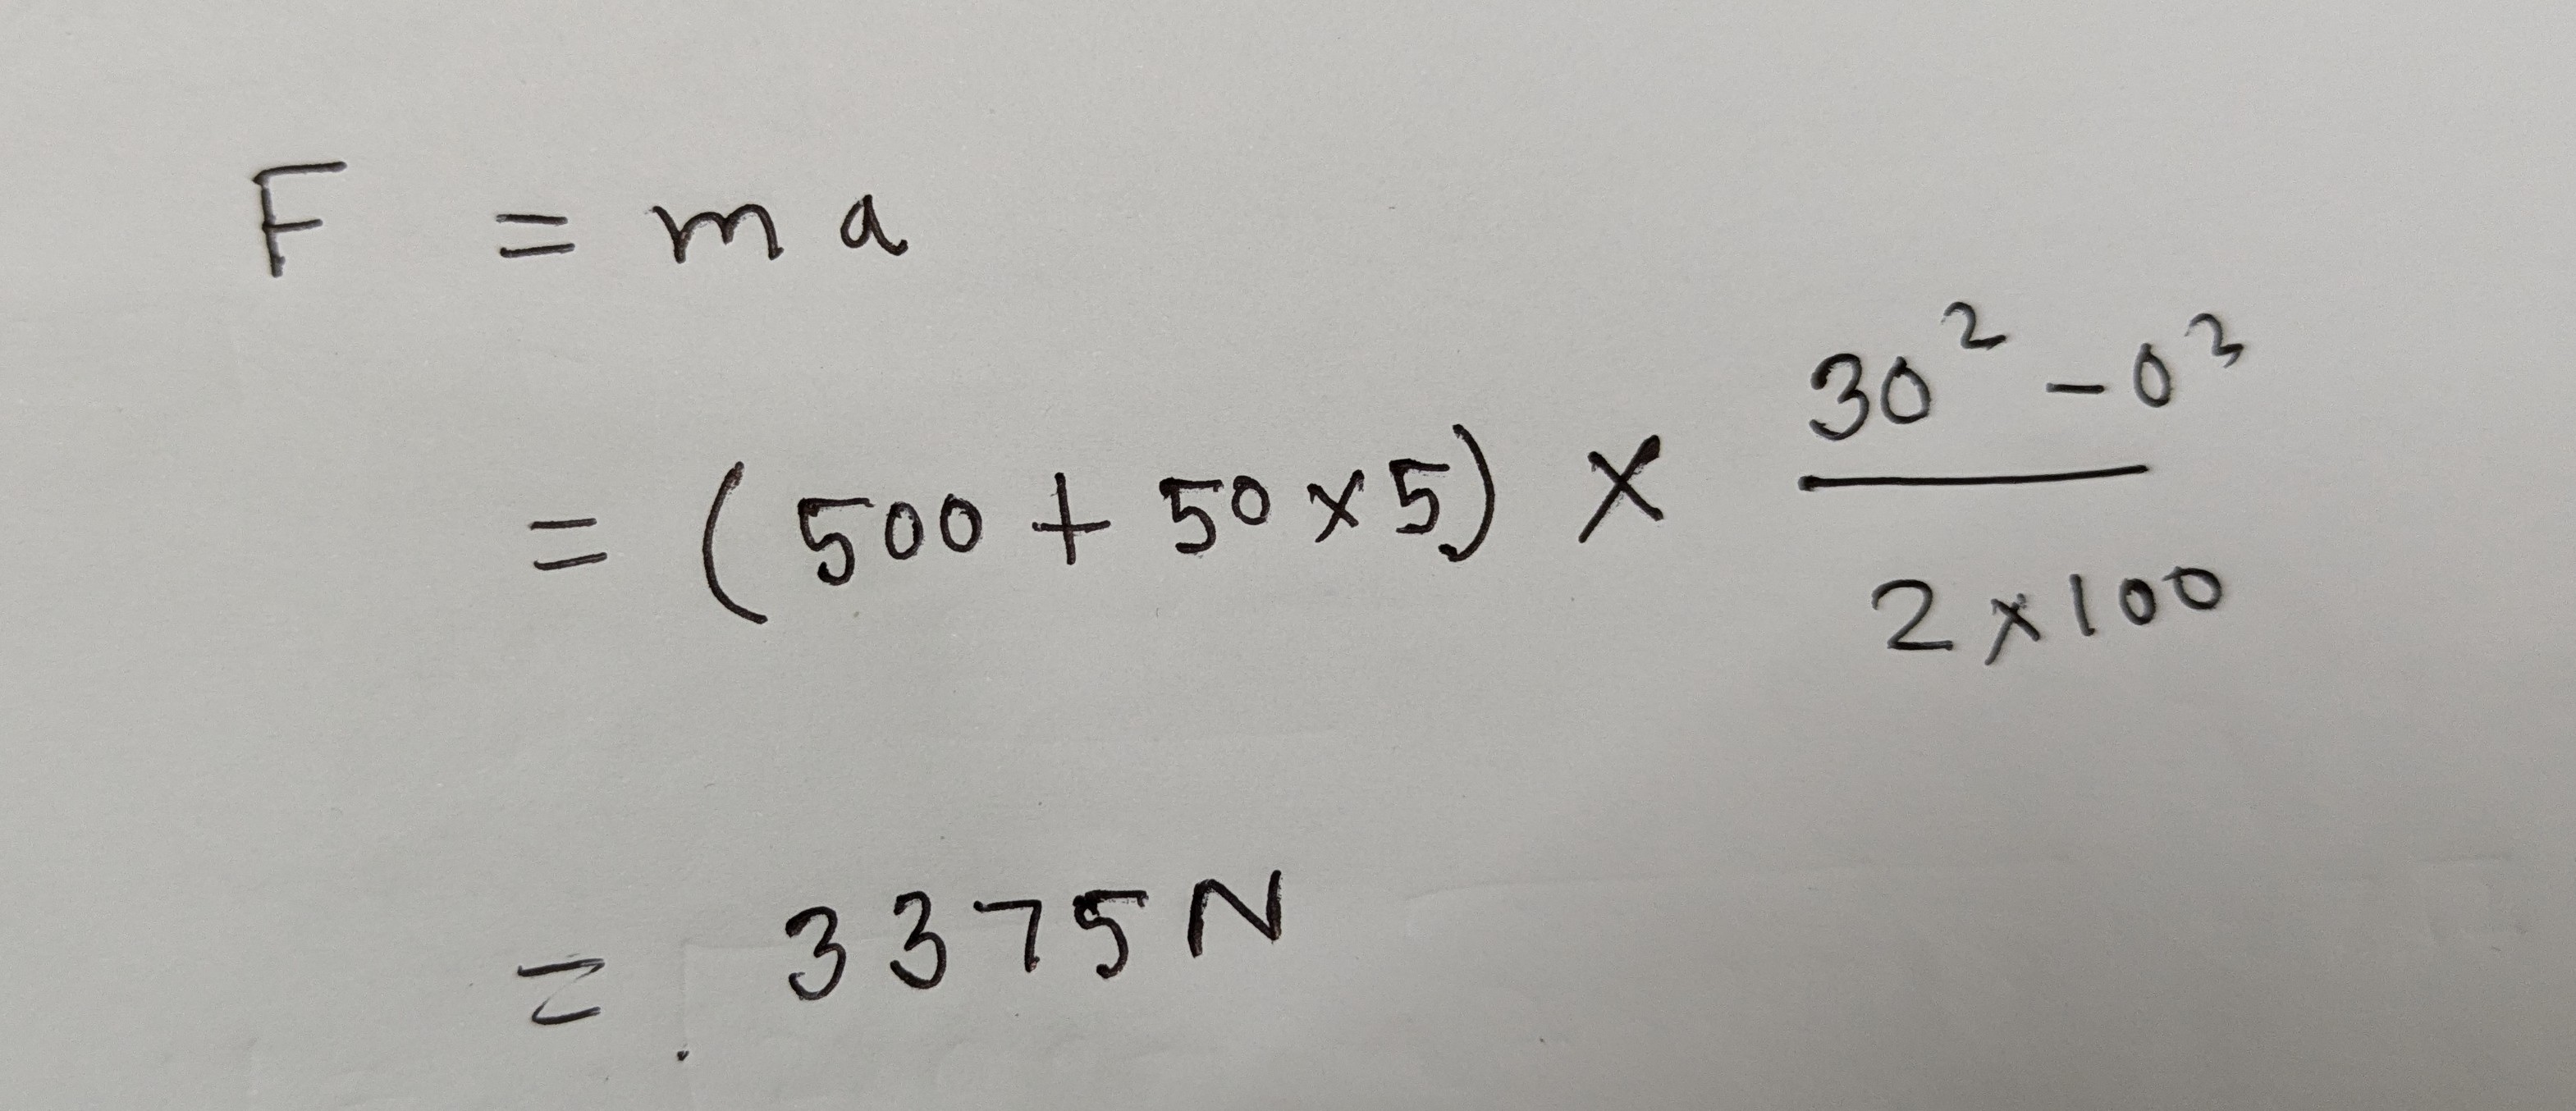 F = ma
= (500 + 50 × 5) × (30² - 0²) / (2 × 100)
= 3375 N